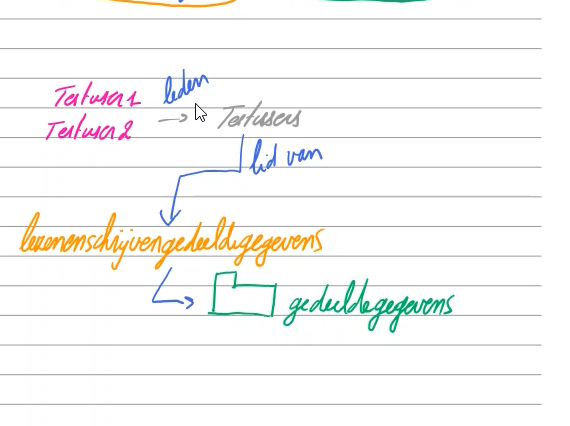 Testuser1 leden
Testuser2 → Testusers
lid van
lezenenschrijvengedeeldegegevens
gedeeldegegevens